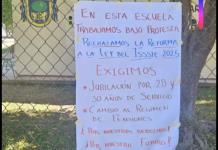 En esta escuela
trabajamos bajo protesta
Rechazamos la Reforma
a la Ley del ISSSTE 2025
Exigimos
• Jubilación por 28 y
30 años de servicio
• Cambio al régimen
de pensiones
¡Por nuestros derechos!
¡Por nuestra familia!